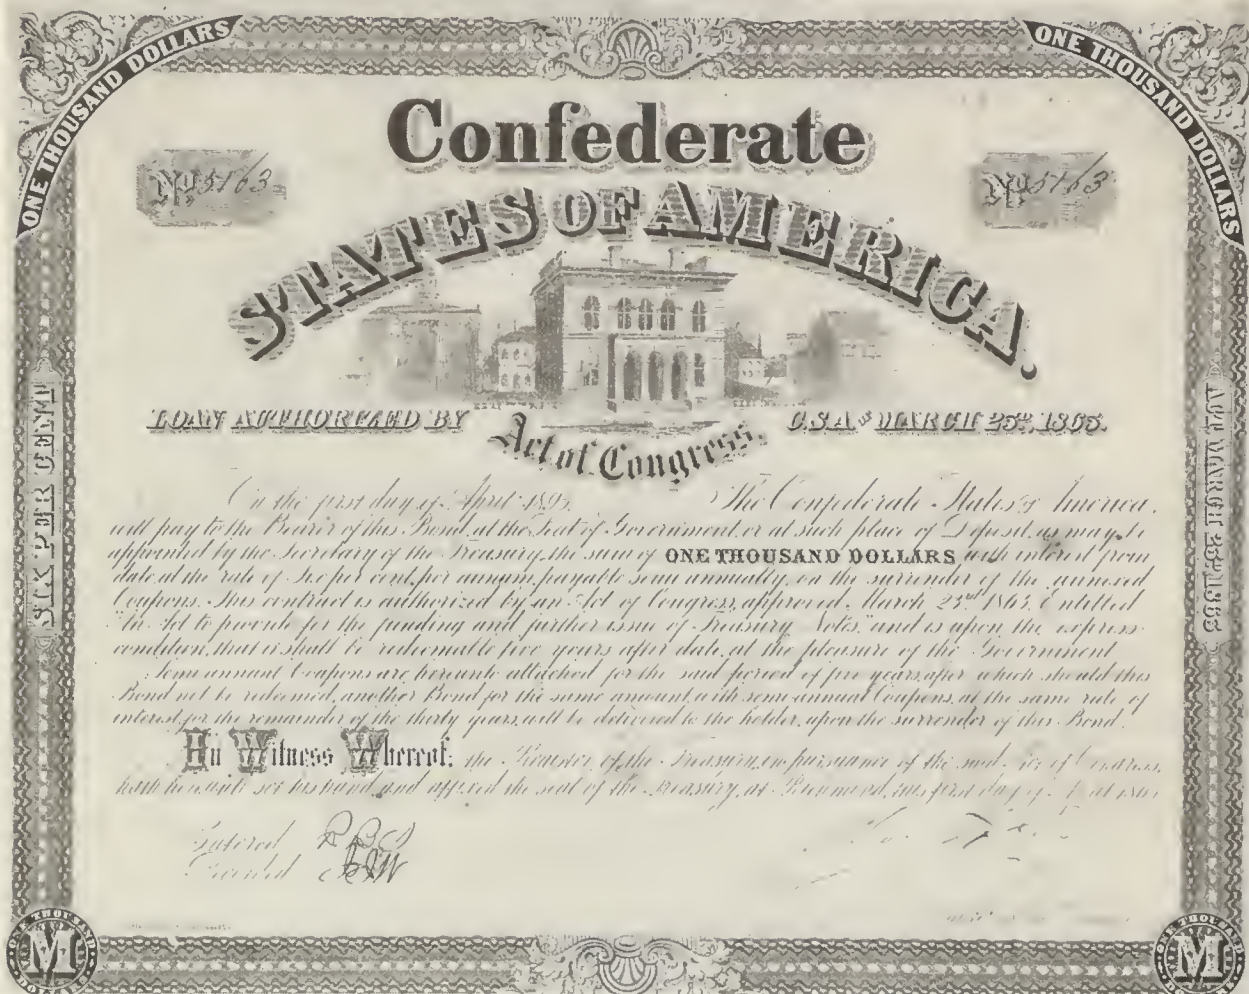 ONE THOUSAND DOLLARS
ONE THOUSAND DOLLARS
Confederate
No 5163
No 5163
STATES OF AMERICA.
LOAN AUTHORIZED BY
Act of Congress,
C.S.A. OF MARCH 23RD, 1863.
SIX PER CENT
ACT MARCH 23RD 1863
On the first day of April 1893, The Confederate States of America,
will pay to the Bearer of this Bond, at the Seat of Government, or at such place of Deposit, as may be
appointed by the Secretary of the Treasury, the sum of ONE THOUSAND DOLLARS with interest from
date at the rate of Six per cent. per annum, payable semi annually, on the surrender of the annexed
Coupons. This contract is authorized by an Act of Congress, approved, March 23rd 1863, Entitled
"An Act to provide for the funding and further issue of Treasury Notes," and is upon the express
condition, that it shall be redeemable five years after date, at the pleasure of the Government.
Semi annual Coupons are hereunto attached for the said period of five years, after which should this
Bond not be redeemed, another Bond for the same amount, with semi-annual Coupons, at the same rate of
interest, for the remainder of the thirty years, will be delivered to the holder, upon the surrender of this Bond.
In Witness Whereof, the Register of the Treasury, in pursuance of the said Act of Congress,
hath hereunto set his hand, and affixed the seal of the Treasury, at Richmond, this first day of
Entered
Recorded
ONE THOUSAND
M
DOLLARS
ONE THOUSAND
M
DOLLARS